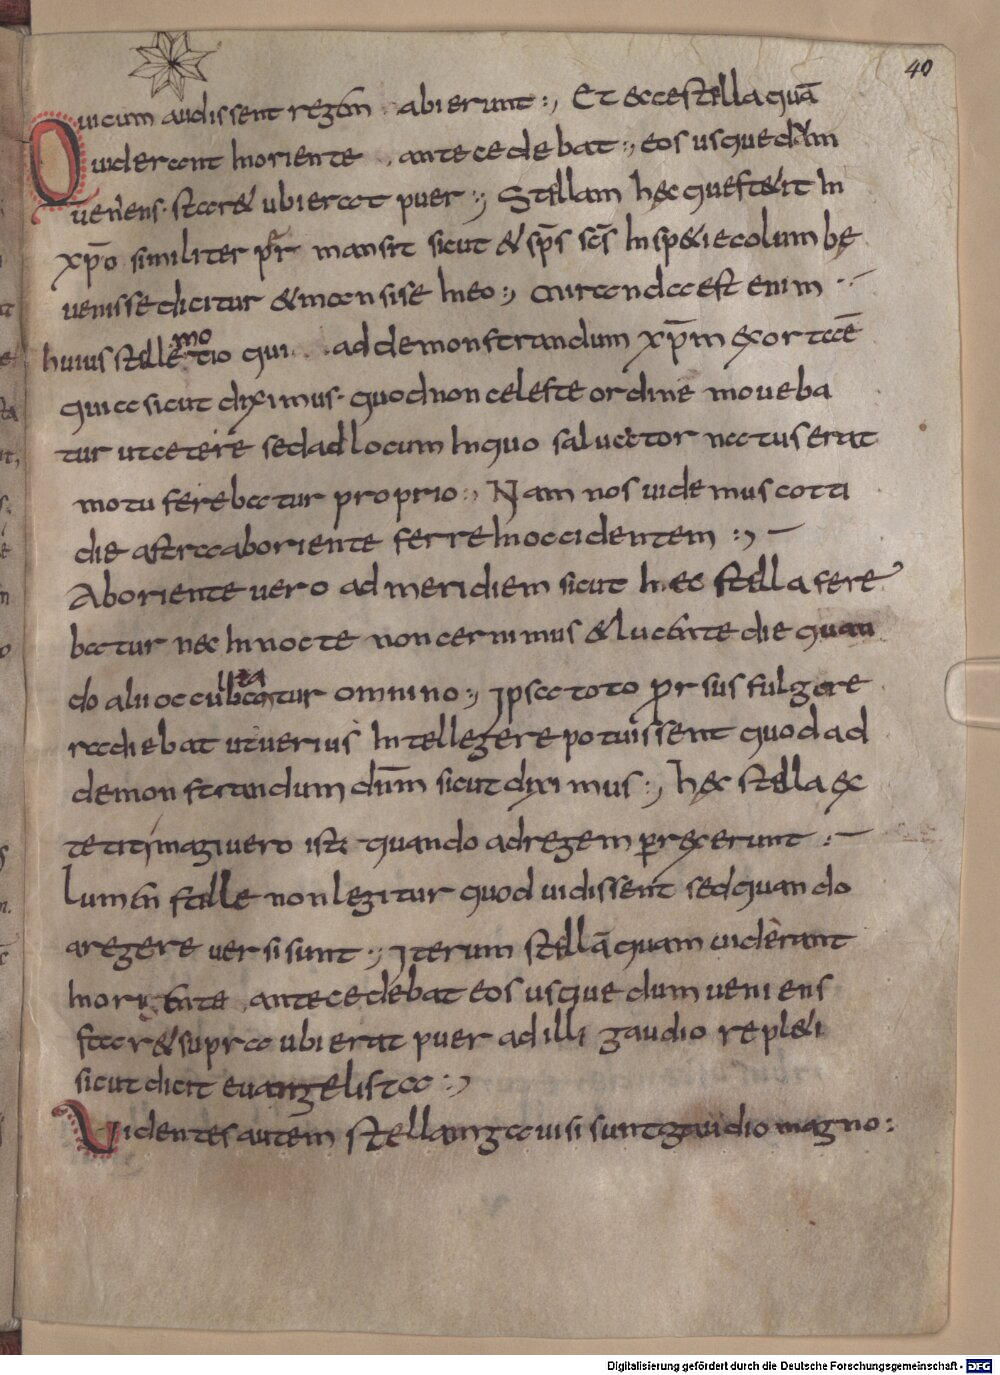 40
Qui cum audissent regem abierunt:, Et ecce stella quā
uiderant In oriente, antecedebat:, eos usque dum
ueniens staret ubi erat puer:, Stellam hęc que stetit In
xp̄o similiter pr̄ mansit sicut & sp̄s sc̄s In sp&ie columbę
uenisse dicitur & mansise In eo:, miranda est enim
huius stelle motio qui ad demonstrandum xp̄m exortaē
quia sicut diximus. quod non celeste ordine moueba
tur ut cetere sed ad locum In quo saluator natus erat
motu ferebatur proprio:, Nam nos uidemus coti
die astra ab oriente ferre In occidentem:,
Ab oriente uero ad meridiem sicut hec stella fere
batur nec In nocte non cernimus & lucente die quan
do alii occultabatur omnino:, Ipsa toto prsus fulgore
radiebat ut uerius Intellegere potuissent quod ad
demonstrandum dn̄m sicut diximus:, hęc stella ex
tetit magi uero isti quando ad regem prexerunt:
Lumen stelle non legitur quod uidissent sed quando
a regere uersi sunt:, Iterum stellā quam uiderant
In oriente, antecedebat eos usque dum ueniens
star& supra ubi erat puer ad illi gaudio repl&i
sicut dicit euangelista:,
Uidentes autem stellam gauisi sunt gaudio magno:
Digitalisierung gefördert durch die Deutsche Forschungsgemeinschaft - DFG